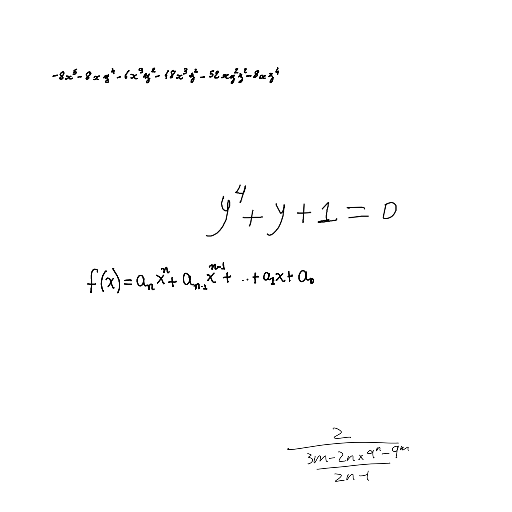 -8x⁵-8xy⁴-1x³y²-18x³z²-52xy²z²-8xz⁴
y⁴+y+1=0
f(x)=aₙxⁿ+aₙ₋₁xⁿ⁻¹+..+a₁x+a₀
2
3m-2n×9ⁿ-9ᵐ
2n-1